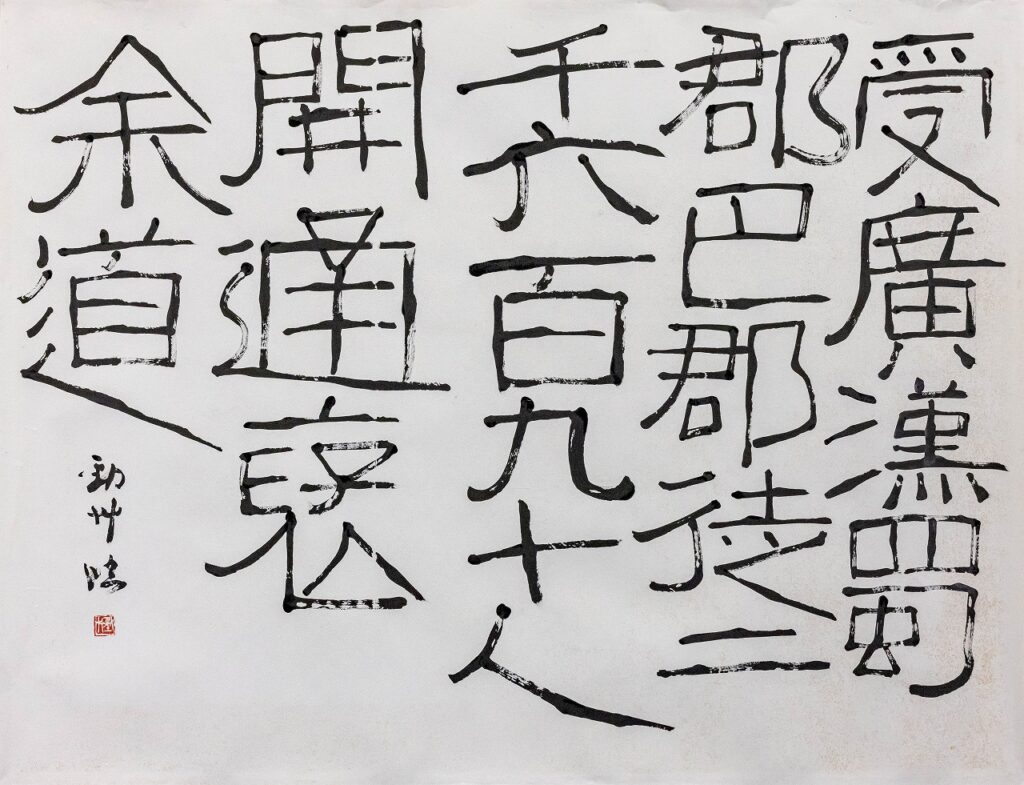 受廣漢蜀
郡巴郡徒二
千六百九十人
開通褒
余道
勁艸臨